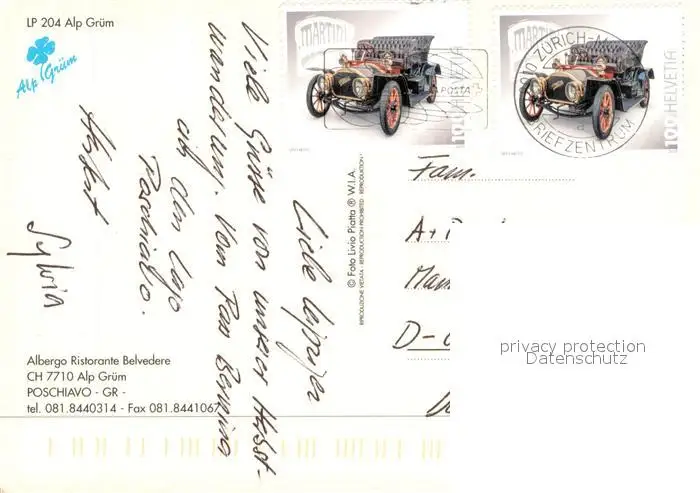 LP 204 Alp Grüm
Alp Grüm
MARTINI
POSTA
HELVETIA
100
MARTINI
ZÜRICH-M
BRIEFZENTRUM
HELVETIA
100
Liebe Leipziger
Viele Grüsse von unserer Herbst-
wanderung. Vom Pass Bernina
auf den Lago
Poschiavo.
Herbert
Sylvia
© Foto Livio Piatta ® W.I.A.
RIPRODUZIONE VIETATA - REPRODUCTION PROHIBITED - REPRODUKTION
Fam.
A+
D-
privacy protection
Datenschutz
Albergo Ristorante Belvedere
CH 7710 Alp Grüm
POSCHIAVO - GR -
tel. 081.8440314 - Fax 081.8441067